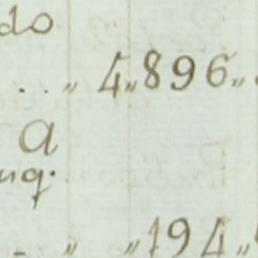 do
. . „ 4„896„
a
nq.
- „ „194„